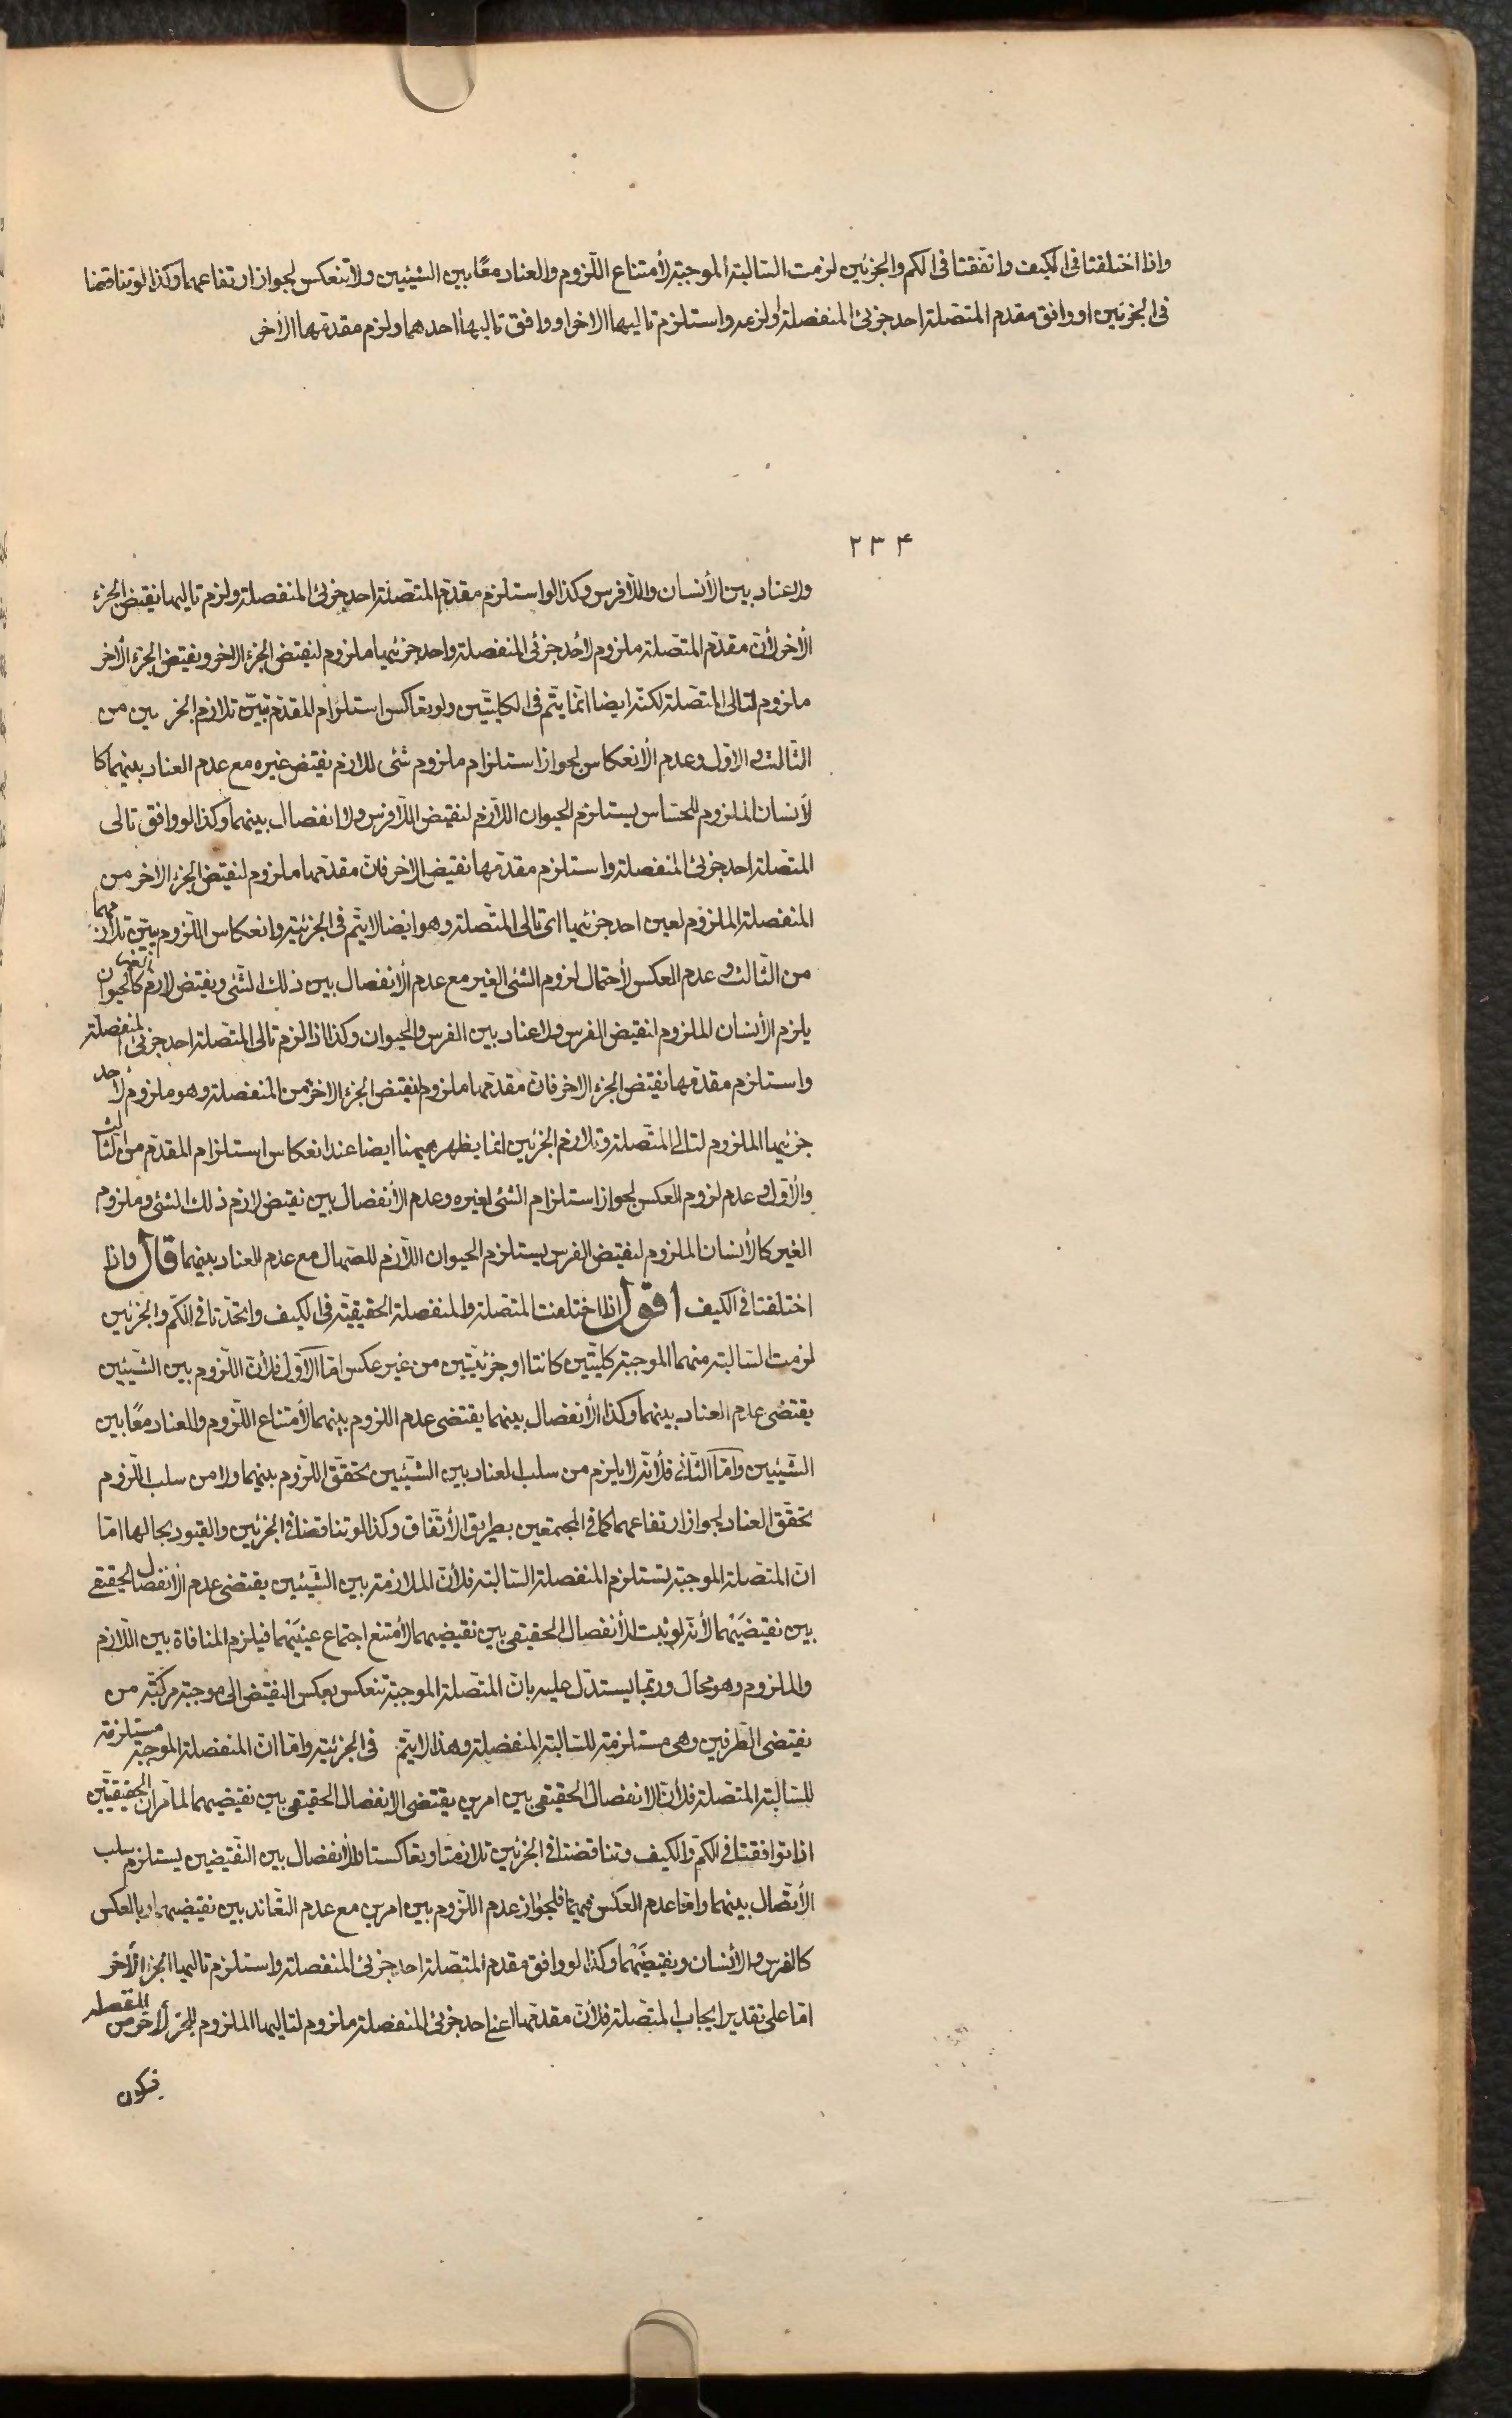 واذا اختلفتا فی الکیف واتفقتا فی الکم والجزئین لزمت السالبة الموجبة لأمتناع اللّزوم والعناد معًا بین الشیئین ولا تنعکس لجواز ارتفاعهما وکذا لو تناقضا
فی الجزئین او وافق مقدم المتصلة احد جزئی المنفصلة او لزمه واستلزم تالیها الاخر او وافق تالیها احدهما ولزم مقدمها الأخر
۲۳۴
ولا عناد بین الأنسان واللّافرس وکذا لو استلزم مقدّم المتّصلة احد جزئی المنفصلة ولزم تالیها نقیض الجزء
الأخر لأنّ مقدّم المتّصلة ملزوم لأحد جزئی المنفصلة واحد جزئیها ملزوم لنقیض الجزء الاخر ونقیض الجزء الأخر
ملزوم لتالی المتّصلة لکنّه ایضا انّما یتّم فی الکلیتّین ولو تعاکس استلزام المقدّم تبیّن تلازم الجزئین من
الثّالث والاوّل وعدم الأنعکاس لجواز استلزام ملزوم شئی للازم نقیض غیره مع عدم العناد بینهما کا
لأنسان الملزوم للحسّاس یستلزم الحیوان اللّازم لنقیض اللّافرس ولا انفصال بینهما وکذا لو وافق تالی
المتّصلة احد جزئی المنفصلة واستلزم مقدّمها نقیض الاخر فانّ مقدّمها ملزوم لنقیض الجزء الأخر من
المنفصلة الملزوم لعین احد جزئیها ای تالی المتّصلة وهو ایضا لا یتّم فی الجزئیّة وانعکاس اللّزوم یبیّن تلازمهما
من الثّالث وعدم العکس لأحتمال لزوم الشئی الغیر مع عدم الأنفصال بین ذلک الشّئی ونقیض لازم کالحیوان
یلزم الأنسان الملزوم لنقیض الفرس ولا عناد بین الفرس والحیوان وکذا اذا لزم تالی المتّصلة احد جزئی المنفصلة
واستلزم مقدّمها نقیض الجزء الاخر فانّ مقدّمها ملزوم لنقیض الجزء الاخر من المنفصلة وهو ملزوم لأحد
جزئیها الملزوم لتالی المتّصلة وتلازم الجزئین انما یظهر هیهنا ایضا عند انعکاس استلزام المقدّم من الثّالث
والأوّل وعدم لزوم العکس لجواز استلزام الشئی لغیره وعدم الأنفصال بین نقیض لازم ذلک الشئی وملزوم
الغیر کالأنسان الملزوم لنقیض الفرس یستلزم الحیوان اللّازم للصّهال مع عدم العناد بینهما قال واذا
اختلفتا فی الکیف اقول اذا اختلفت المتّصلة والمنفصلة الحقیقیّة فی الکیف واتّحدّتا فی الکّم والجزئین
لزمت السّالبة منهما الموجبة کلیتّین کانتا او جزئیتّین من غیر عکس امّا الأوّل فلأنّ اللّزوم بین الشّیئین
یقتضی عدم العناد بینهما وکذا الأنفصال بینهما یقتضی عدم اللزوم بینهما لأمتناع اللّزوم والعناد معًا بین
الشّیئین وامّا الثّانی فلأنّه لا یلزم من سلب العناد بین الشّیئین تحقّق اللّزوم بینهما ولا من سلب اللّزوم
تحقّق العناد لجواز ارتفاعهما کما فی المجتمعین بطریق الأتّفاق وکذا لو تناقضا فی الجزئین والقیود بحالها امّا
انّ المتّصلة الموجبة تستلزم المنفصلة السّالبة فلأنّ الملازمة بین الشّیئین یقتضی عدم الأنفصال الحقیقی
بین نقیضَیْهما لأنّه لو ثبت الأنفصال الحقیقی بین نقیضیهما لأمتنع اجتماع عینَیْهما فیلزم المنافاة بین اللّازم
والملزوم وهو محال وربّما یستدلّ علیه بانّ المتّصلة الموجبة تنعکس بعکس النقیض الی موجبة مرکبّة من
نقیضی الطّرفین وهی مستلزمة للسّالبة المنفصلة وهذا لا یتّم فی الجزئیّة وامّا انّ المنفصلة الموجبة مستلزمة
للسّالبة المتّصلة فلأنّ الانفصال الحقیقی بین امرین یقتضی الأنفصال الحقیقی بین نقیضیهما لما مّر انّ الحقیقیّتین
اذا توافقتا فی الکّم والکیف وتناقضتا فی الجزئین تلازمتا وتعاکستا والأنفصال بین النّقیضین یستلزم سلب
الأتّصال بینهما وامّا عدم العکس فیهما فلجواز عدم اللّزوم بین امرین مع عدم التعّاند بین نقیضیهما او بالعکس
کالفرس والأنسان ونقیضَیْهما وکذا لو وافق مقدم المتّصلة احد جزئی المنفصلة واستلزم تالیها الجزء الأخر
امّا علی تقدیر ایجاب المتّصلة فلأنّ مقدّمها اعنی احد جزئی المنفصلة ملزوم لتالیها الملزوم للجزء الأخر من المنفصلة
فیکون